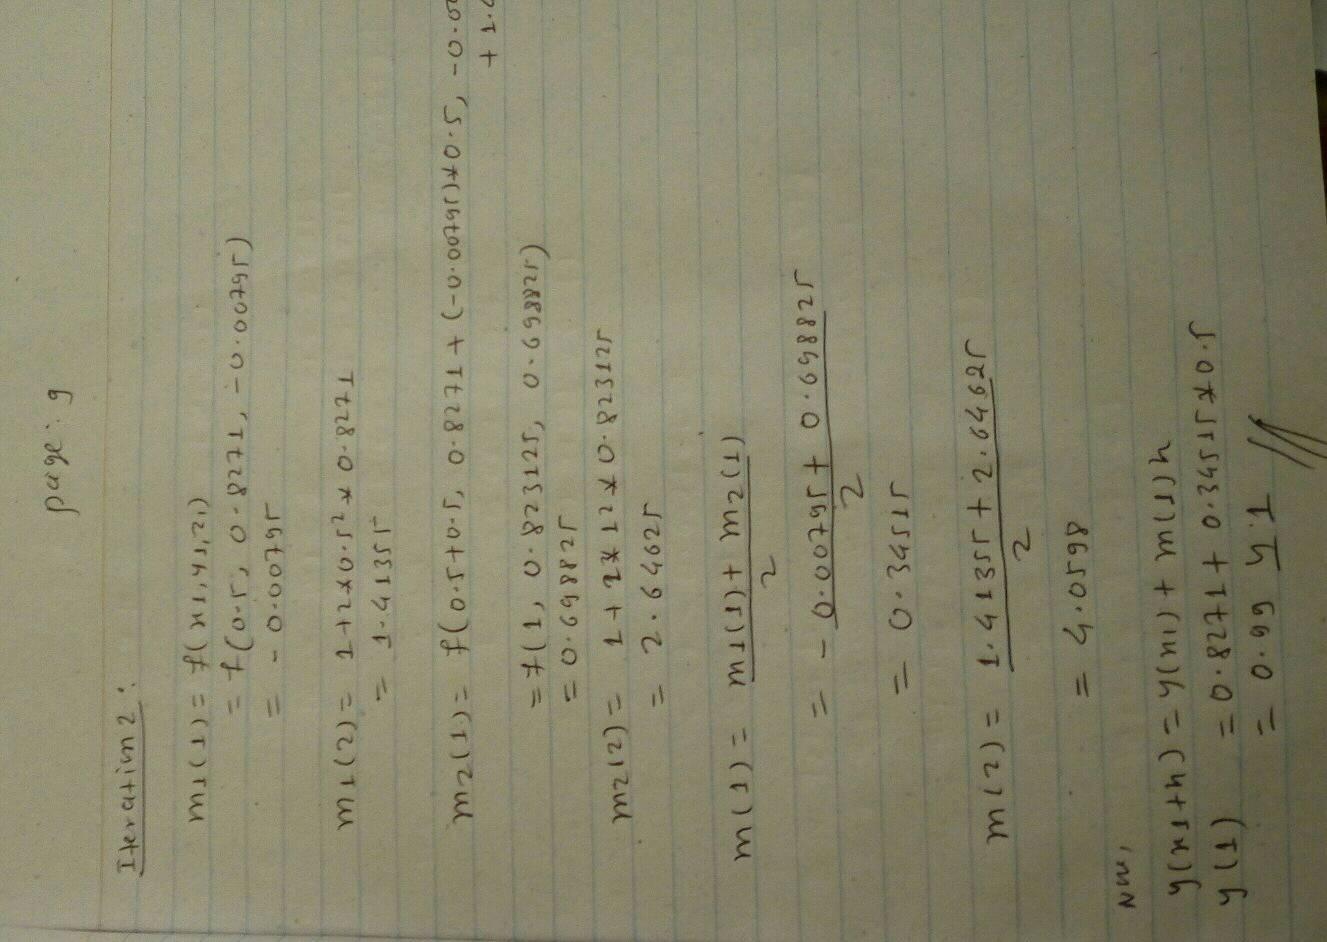 page: 9
Iteration 2:
m1(1) = f(x1, y1, z1)
= f(0.5, 0.8271, -0.00795)
= - 0.00795
m1(2) = 1+2*0.5²*0.8271
= 1.41355
m2(1) = f(0.5+0.5, 0.8271+(-0.00795)*0.5, -0.0
+1.
= f(1, 0.823125, 0.698825)
= 0.698825
m2(2) = 1+2*1²*0.823125
= 2.64625
m(1) = m1(1) + m2(1)
2
= - 0.00795 + 0.698825
2
= 0.34515
m(2) = 1.41355 + 2.64625
2
= 4.0598
Now,
y(x1+h) = y(x1) + m(1)h
y(1) = 0.8271 + 0.34515*0.5
= 0.99